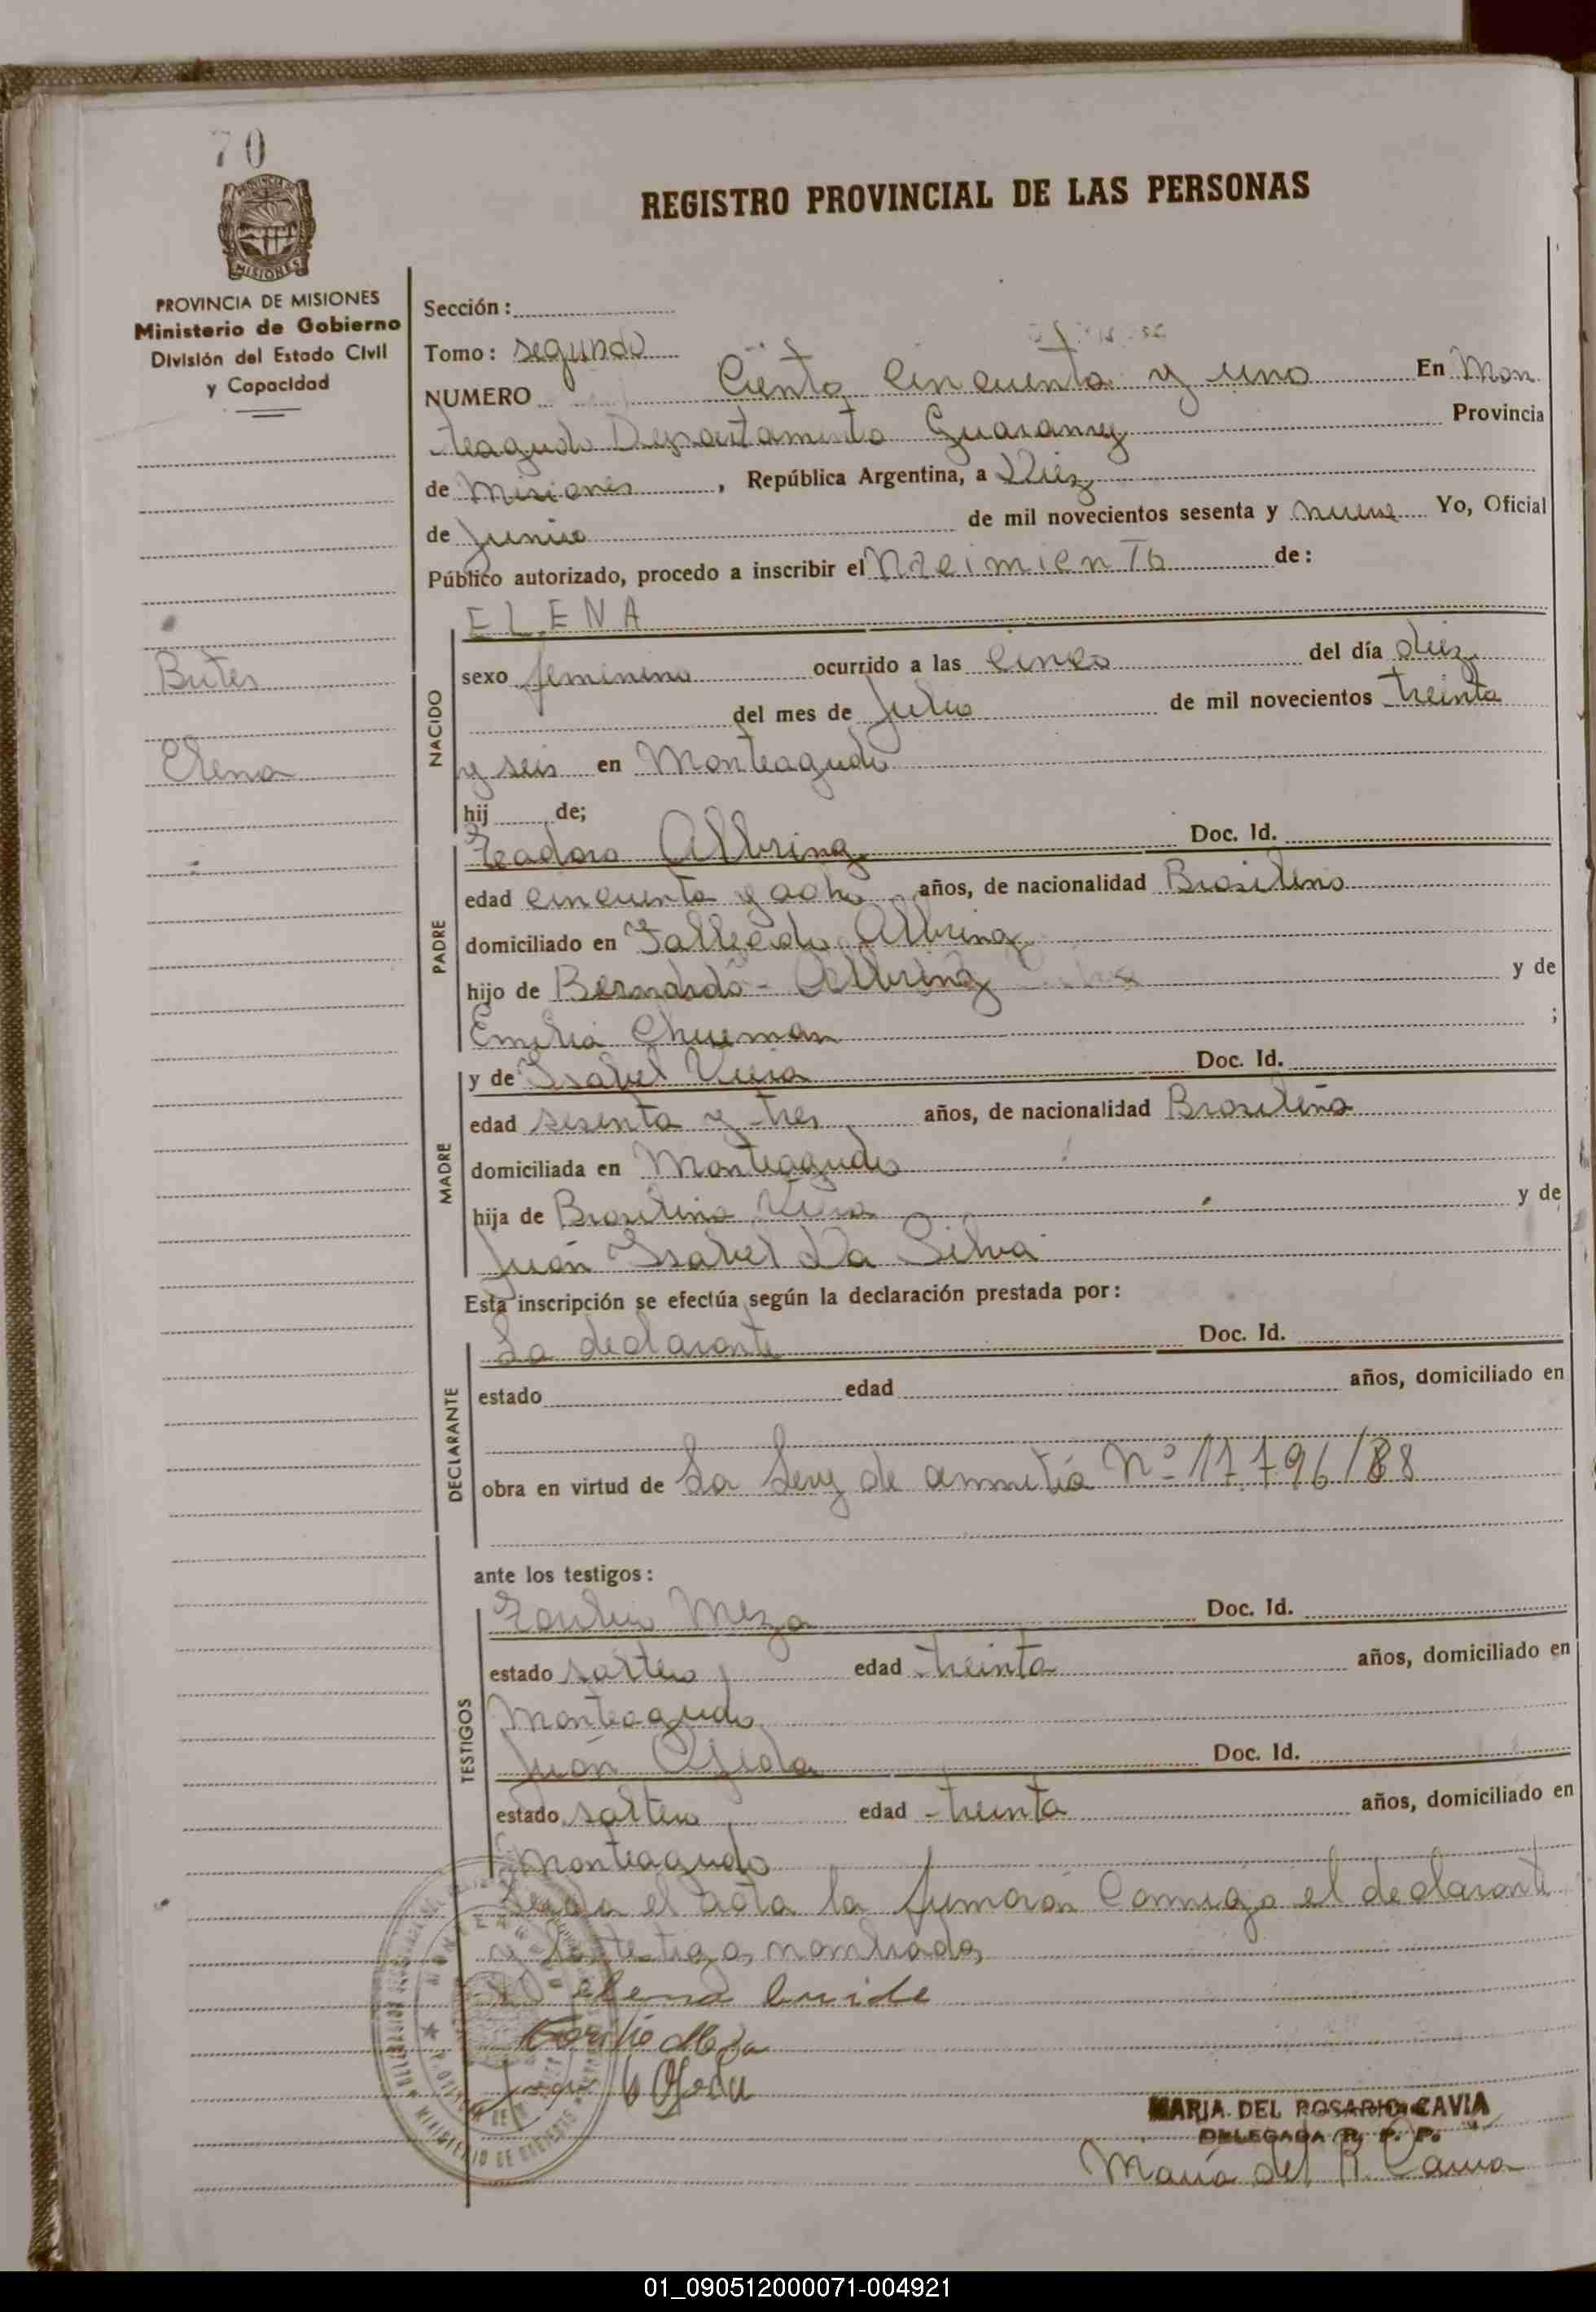 70
MISIONES
PROVINCIA DE MISIONES
Ministerio de Gobierno
División del Estado Civil
y Capacidad
REGISTRO PROVINCIAL DE LAS PERSONAS
Sección:
Tomo: segundo
NUMERO Ciento Cincuenta y uno En Mon
teagudo Departamento Guarany Provincia
de Misiones, República Argentina, a Diez
de Junio de mil novecientos sesenta y nueve Yo, Oficial
Público autorizado, procedo a inscribir el Nacimiento de:
ELENA
sexo femenino ocurrido a las cinco del día diez
del mes de Julio de mil novecientos treinta
y seis en Monteagudo
hij de;
NACIDO
Butes
Elena
Teadoro Albring Doc. Id.
edad cincuenta y ocho años, de nacionalidad Brasileno
domiciliado en Fallecido Albring
hijo de Bernardo - Albring y de
Emilia ;
PADRE
y de Isabel Viera Doc. Id.
edad sesenta y tres años, de nacionalidad Brasileña
domiciliada en Monteagudo
hija de Brasilino Viera y de
Juan Isabel Da Silva
MADRE
Esta inscripción se efectúa según la declaración prestada por:
La declarante Doc. Id.
estado edad años, domiciliado en
obra en virtud de La Ley de amnitia Nº 17.796/68
DECLARANTE
ante los testigos:
Meza Doc. Id.
estado soltero edad treinta años, domiciliado en
Monteagudo
Juan Ojeda Doc. Id.
estado soltero edad treinta años, domiciliado en
Monteagudo
TESTIGOS
Leida el acta la firmarán Conmigo el declarante
y los testigos nombrados
elena
Meza
Ojeda
MARIA DEL ROSARIO CAVIA
DELEGADA R. P. P.
María del R. Cavia
01_090512000071-004921